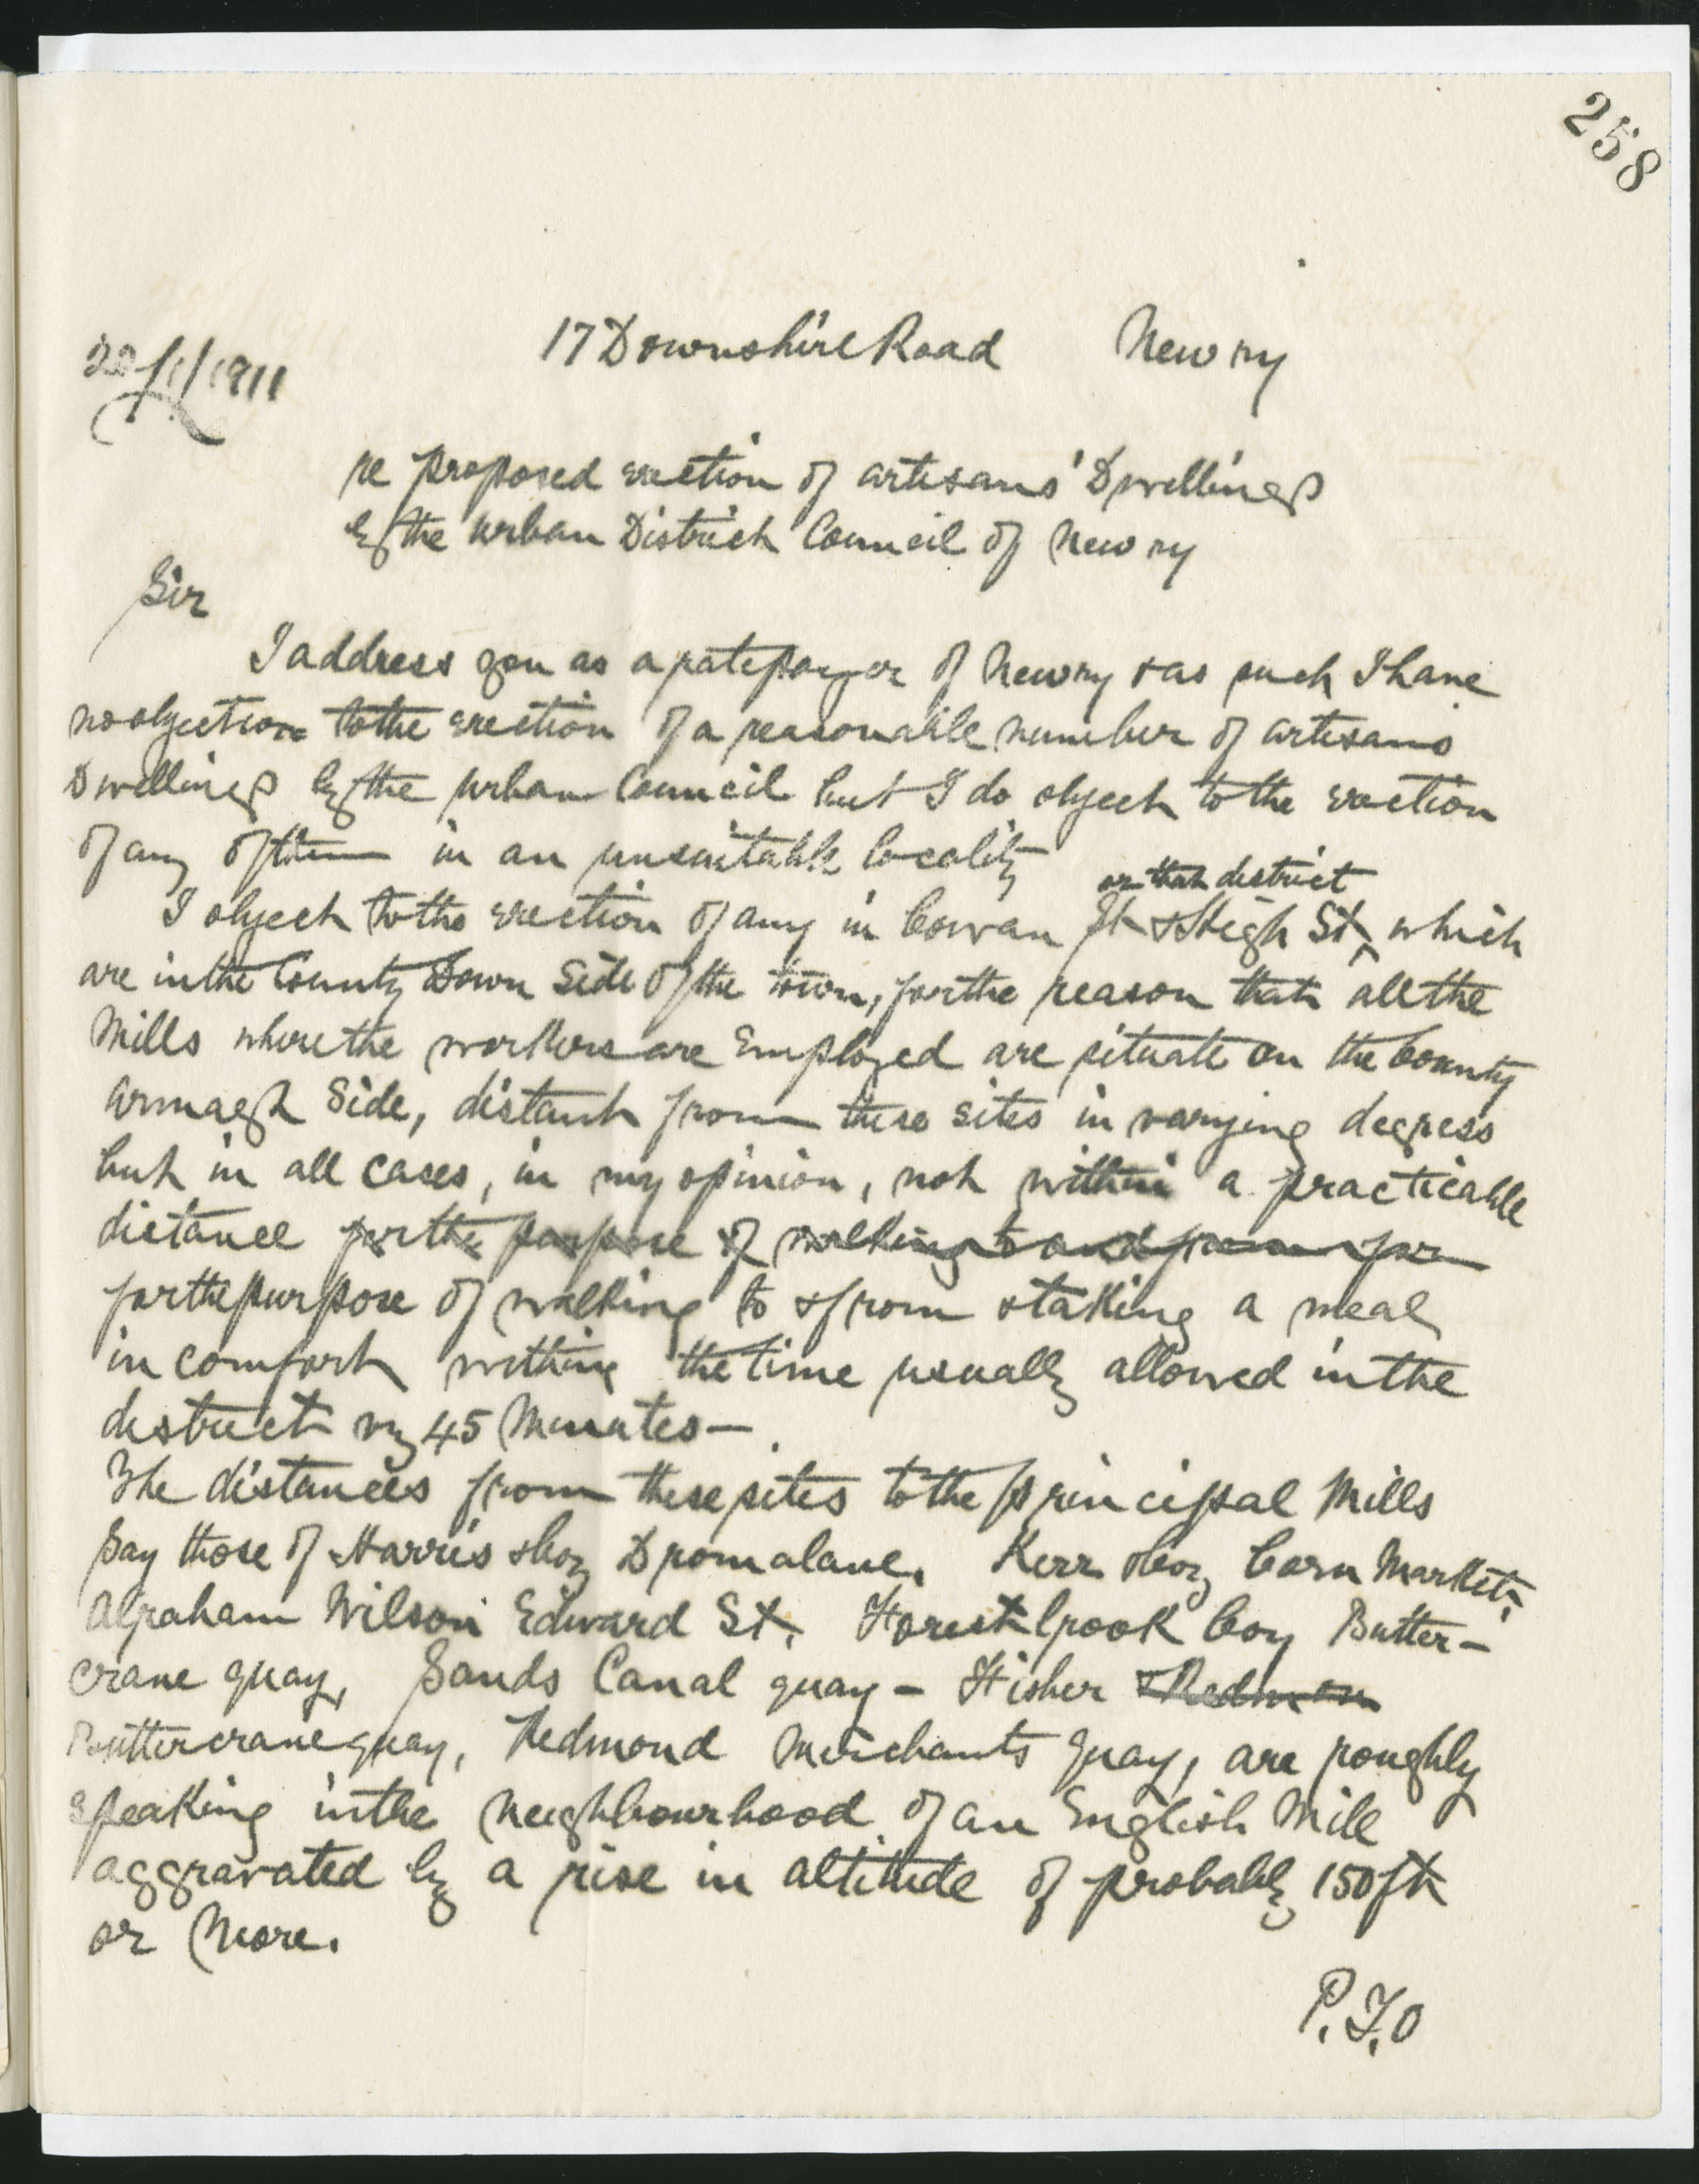 258
17 Downshire Road Newry
22/1/1911
re proposed erection of artisans' Dwellings
by the Urban District Council of Newry
Sir
I address you as a ratepayer of Newry & as such I have
no objection to the erection of a reasonable number of artisans
Dwellings by the Urban Council but I do object to the erection
of any of them in an unsuitable locality
or that district
I object to the erection of any in Cowan St & High St, which
are in the County Down Side of the town, for the reason that all the
Mills where the workers are Employed are situate on the County
Armagh Side, distant from these sites in varying degrees
but in all cases, in my opinion, not within a practicable
distance for the purpose of walking to and from for
for the purpose of walking to & from & taking a meal
in comfort within the time usually allowed in the
district viz 45 Minutes —
The distances from these sites to the principal Mills
Say those of Harris & Coy Dromalane, Kerr & Coy Corn Market,
Abraham Wilson Edward St, Forestbrook Coy Butter-
crane quay, Sands Canal quay - Fisher & Redmon
Buttercrane quay, Redmond Merchants quay, are roughly
speaking in the neighbourhood of an English Mile
aggravated by a rise in altitude of probably 150 ft
or More.
P.T.O